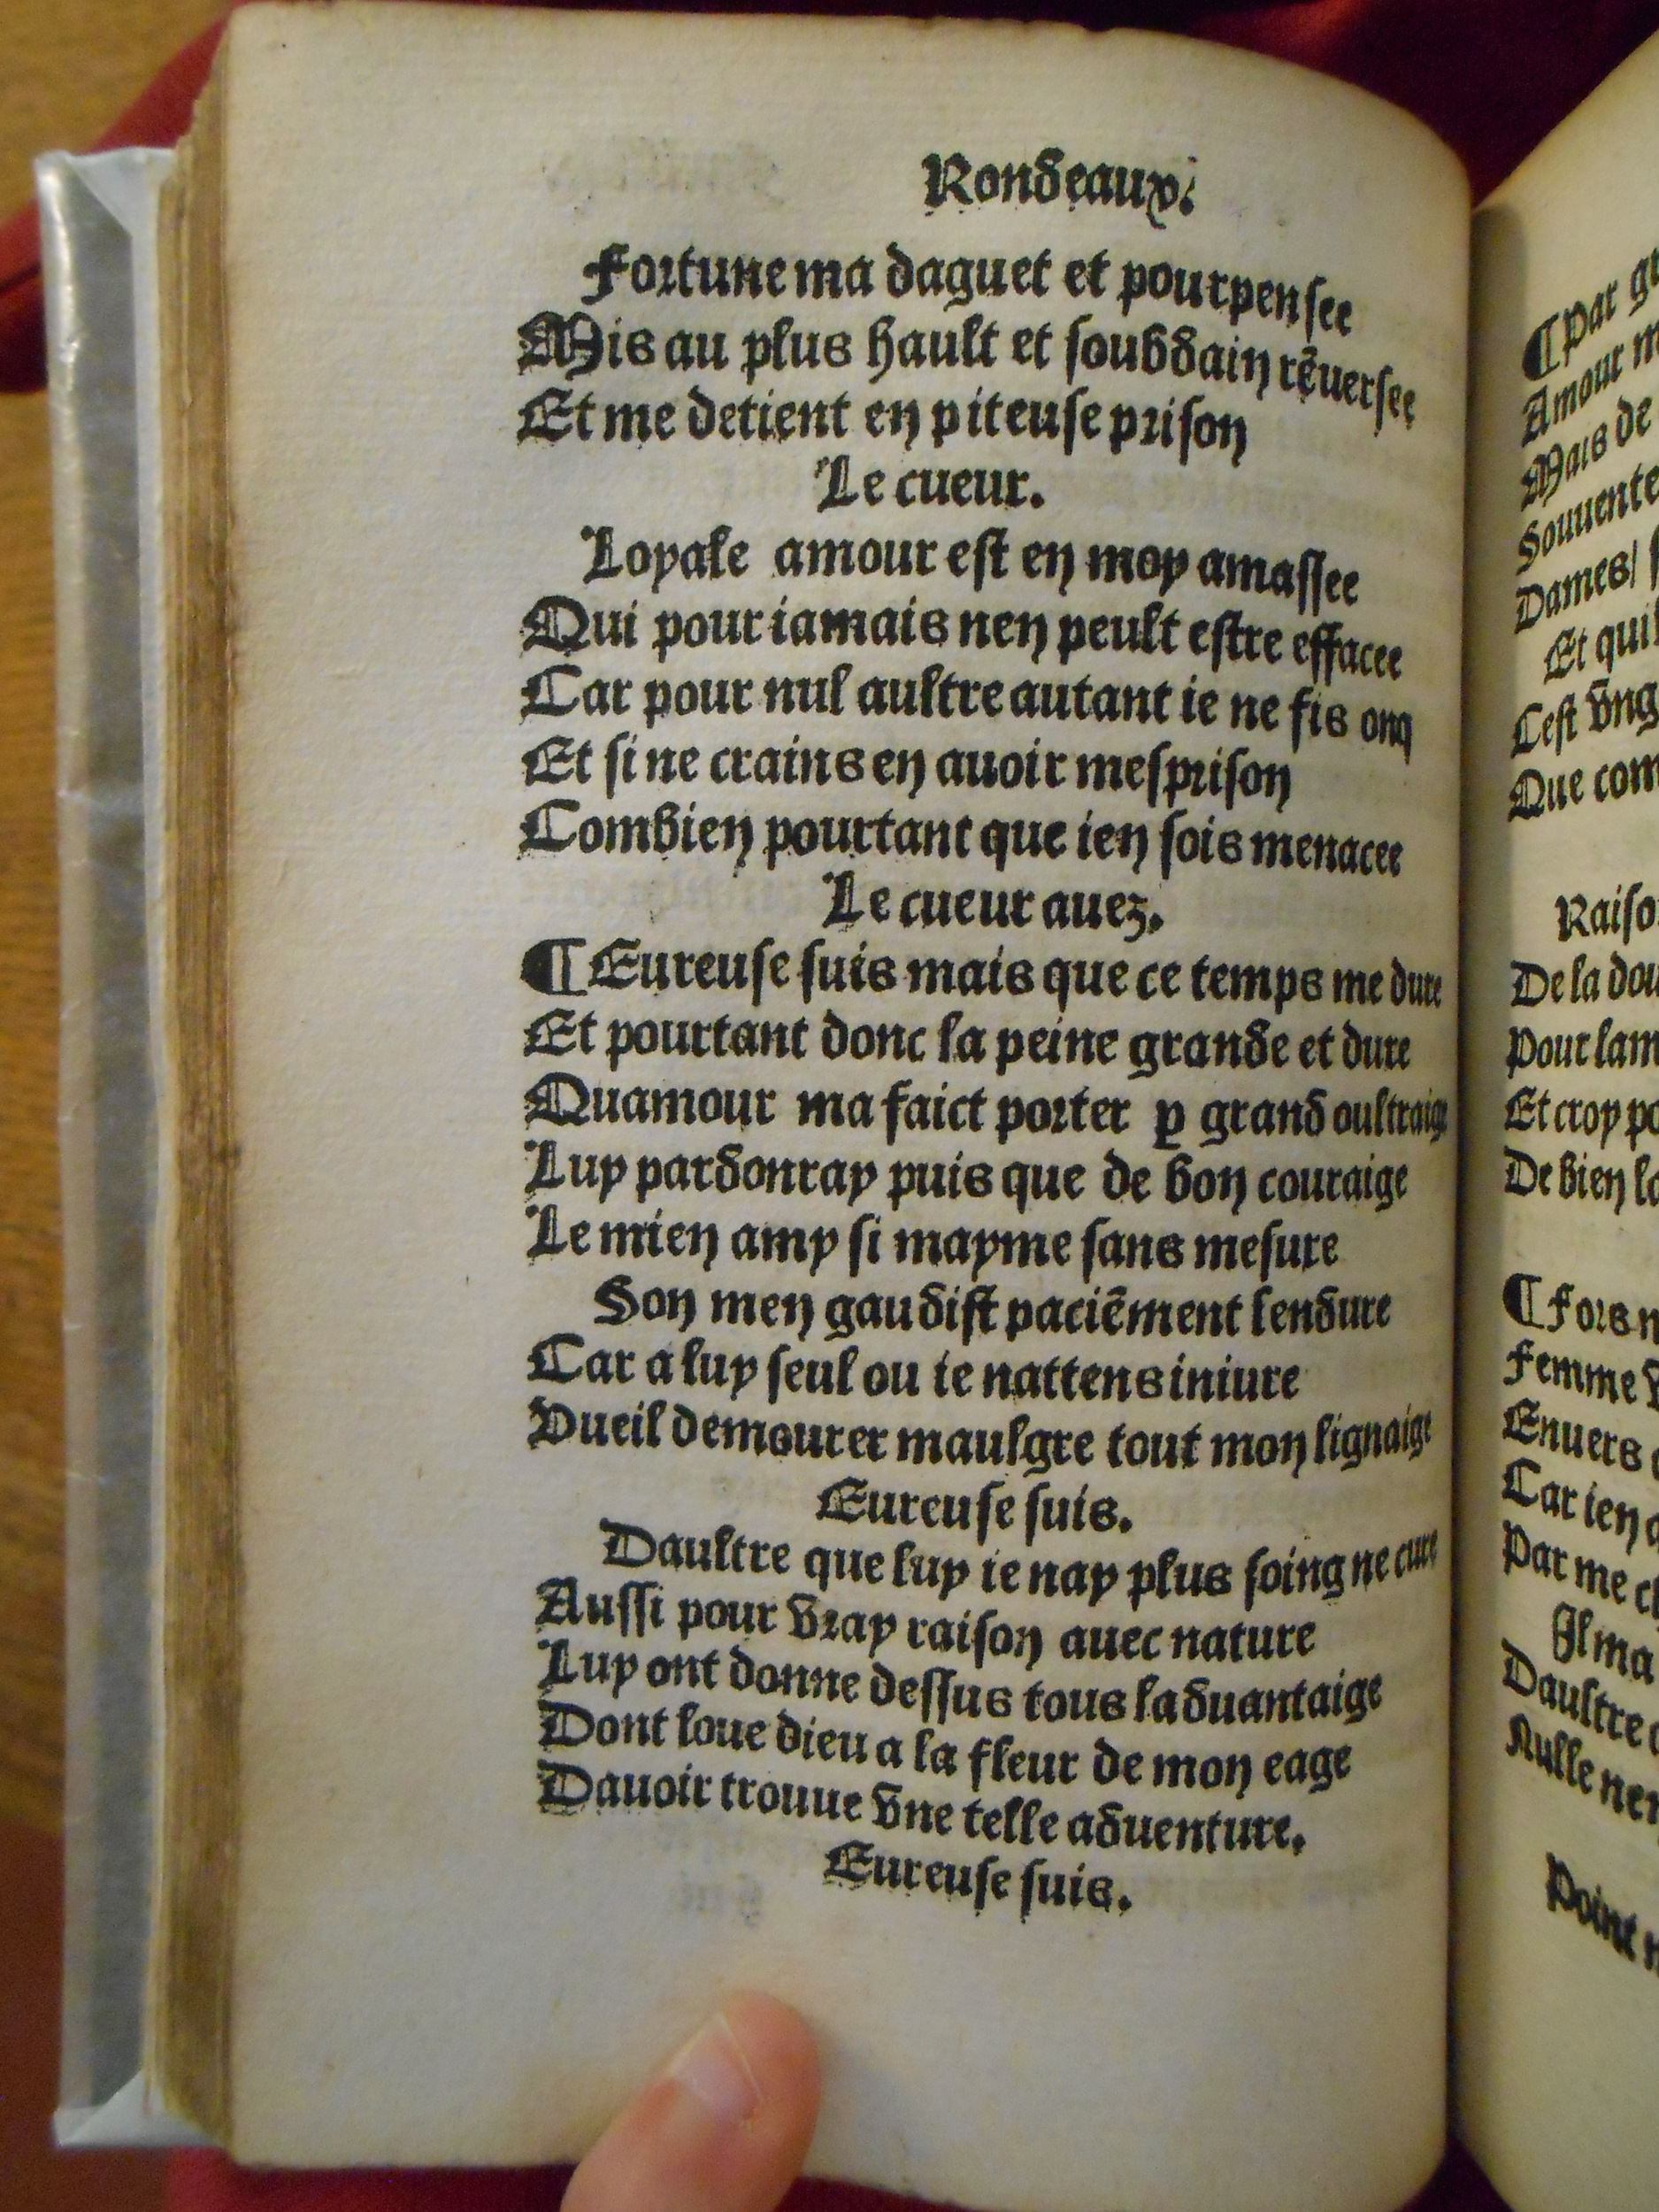 Rondeaux.
Fortune ma daguet et pourpensee
Mis au plus hault et soubdain rēuersee
Et me detient en piteuse prison
Le cueur.
Loyale amour est en moy amassee
Qui pour iamais nen peult estre effacee
Car pour nul aultre autant ie ne fis onq
Et si ne crains en auoir mesprison
Combien pourtant que ien sois menacee
Le cueur auez.
¶ Eureuse suis mais que ce temps me dure
Et pourtant donc la peine grande et dure
Quamour ma faict porter ꝑ grand oultraige
Luy pardonray puis que de bon couraige
Le mien amy si mayme sans mesure
Son men gaudist paciēment lendure
Car a luy seul ou ie nattens iniure
Vueil demourer maulgre tout mon lignaige
Eureuse suis.
Daultre que luy ie nay plus soing ne cure
Aussi pour vray raison auec nature
Luy ont donne dessus tous laduantaige
Dont loue dieu a la fleur de mon eage
Dauoir trouue vne telle aduenture.
Eureuse suis.
¶ Par
Amour
Mais de
Dames/
Et
Cest vng
Que
De la
Pour
Et
De bien
¶ Fors
Femme
Enuers
Car ien
Par me
Il ma
Daultre
Nulle
Point